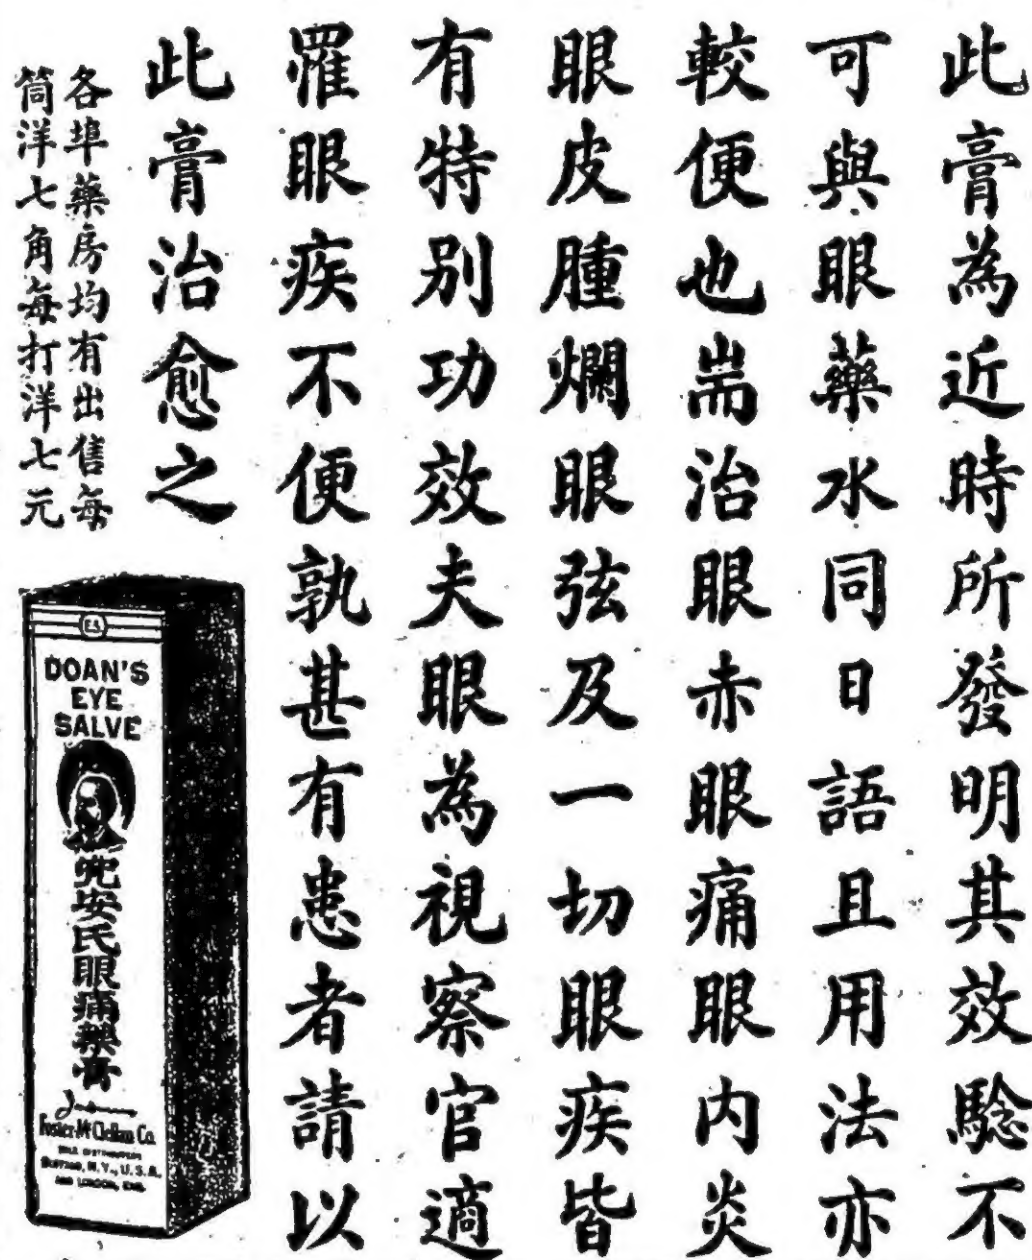 此膏為近時所發明其效驗不
可與眼藥水同日語且用法亦
較便也耑治眼赤眼痛眼内炎
眼皮腫爛眼弦及一切眼疾皆
有特别功效夫眼為視察官適
罹眼疾不便孰甚有患者請以
此膏治愈之
各埠藥房均有出售每
筒洋七角每打洋七元
E.S.
DOAN'S
EYE
SALVE
兜安氏眼痛藥膏
Foster-McClellan Co.
SOLE DISTRIBUTORS
BUFFALO, N.Y., U.S.A.
AND LONDON, ENG.